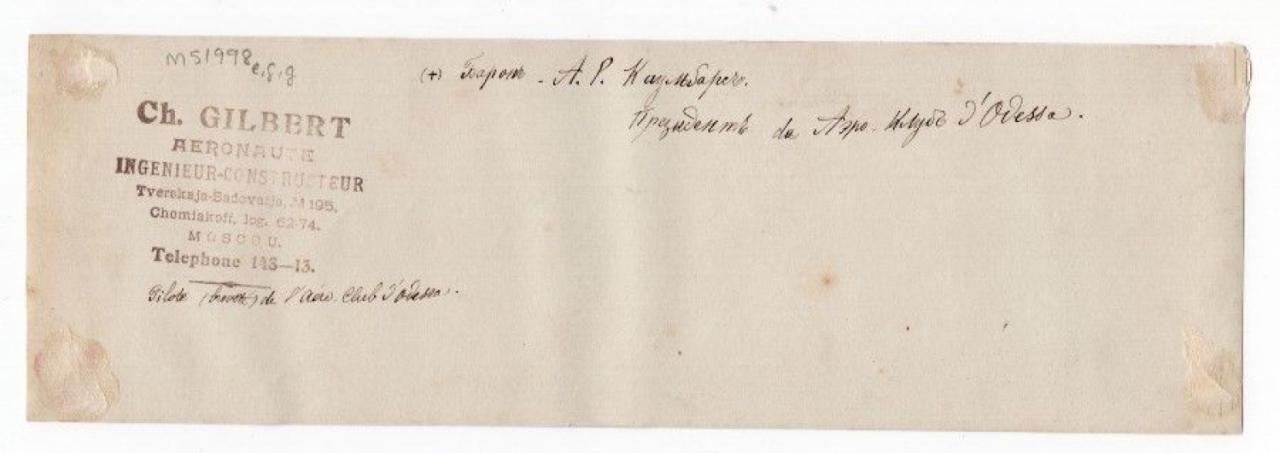 MS1998 e,f,g
(+) Баронъ - А. Р. Каульбарсъ.
Президентъ da Аэро-Клубъ d'Odessa.
Ch. GILBERT
AERONAUTE
INGENIEUR-CONSTRUCTEUR
Tverskaja-Sadovaija, M 195,
Chomiakoff, log. 62-74.
MOSCOU.
Telephone 143—13.
Pilote (breveté) de l'Aéro-Club d'Odessa.